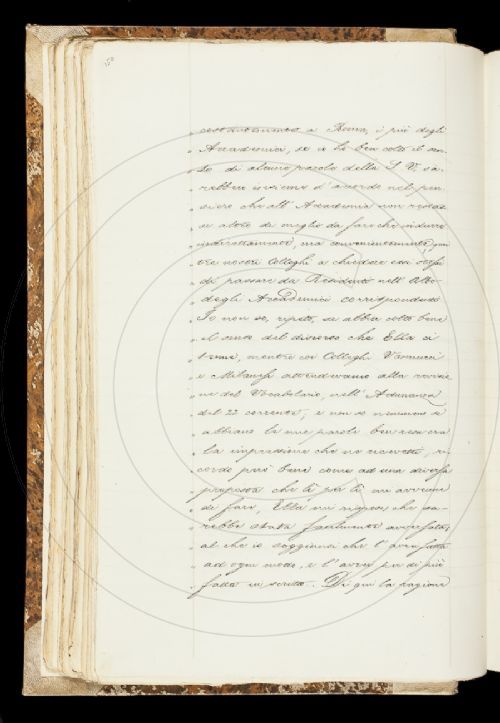 150
" costantemente a Roma, i più degli
" Accademici, se io ho ben colto il sen-
" so di alcune parole della S. V., sa-
" rebbero insieme d'accordo nel pen-
" siero che all'Accademia non restas-
" se altro di meglio da fare che indurre
" indirettamente, ma convenientemente, que
" tre nostri Colleghi a chiedere essi stessi
" di passare da Residenti nell'Albo
" degli Accademici corrispondenti.
" Io non so, ripeto, se abbia colto bene
" il senso del discorso che Ella ci
" tenne, mentre coi Colleghi Vannucci
" e Milanesi attendevamo alla revisio-
" ne del Vocabolario, nell'Adunanza
" del 22 corrente, e non so nemmeno se
" abbiano le mie parole ben resa era
" la impressione che ne ricevetti, ri-
" cordo però bene come ad una diversa
" proposta che lì per lì mi avvenne
" di fare, Ella mi rispose che sa-
" rebbe stata facilmente avversata,
" al che io soggiunsi che l'avrei fatta
" ad ogni modo, e l'avrei per di più
" fatta in scritto. Di qui la ragione